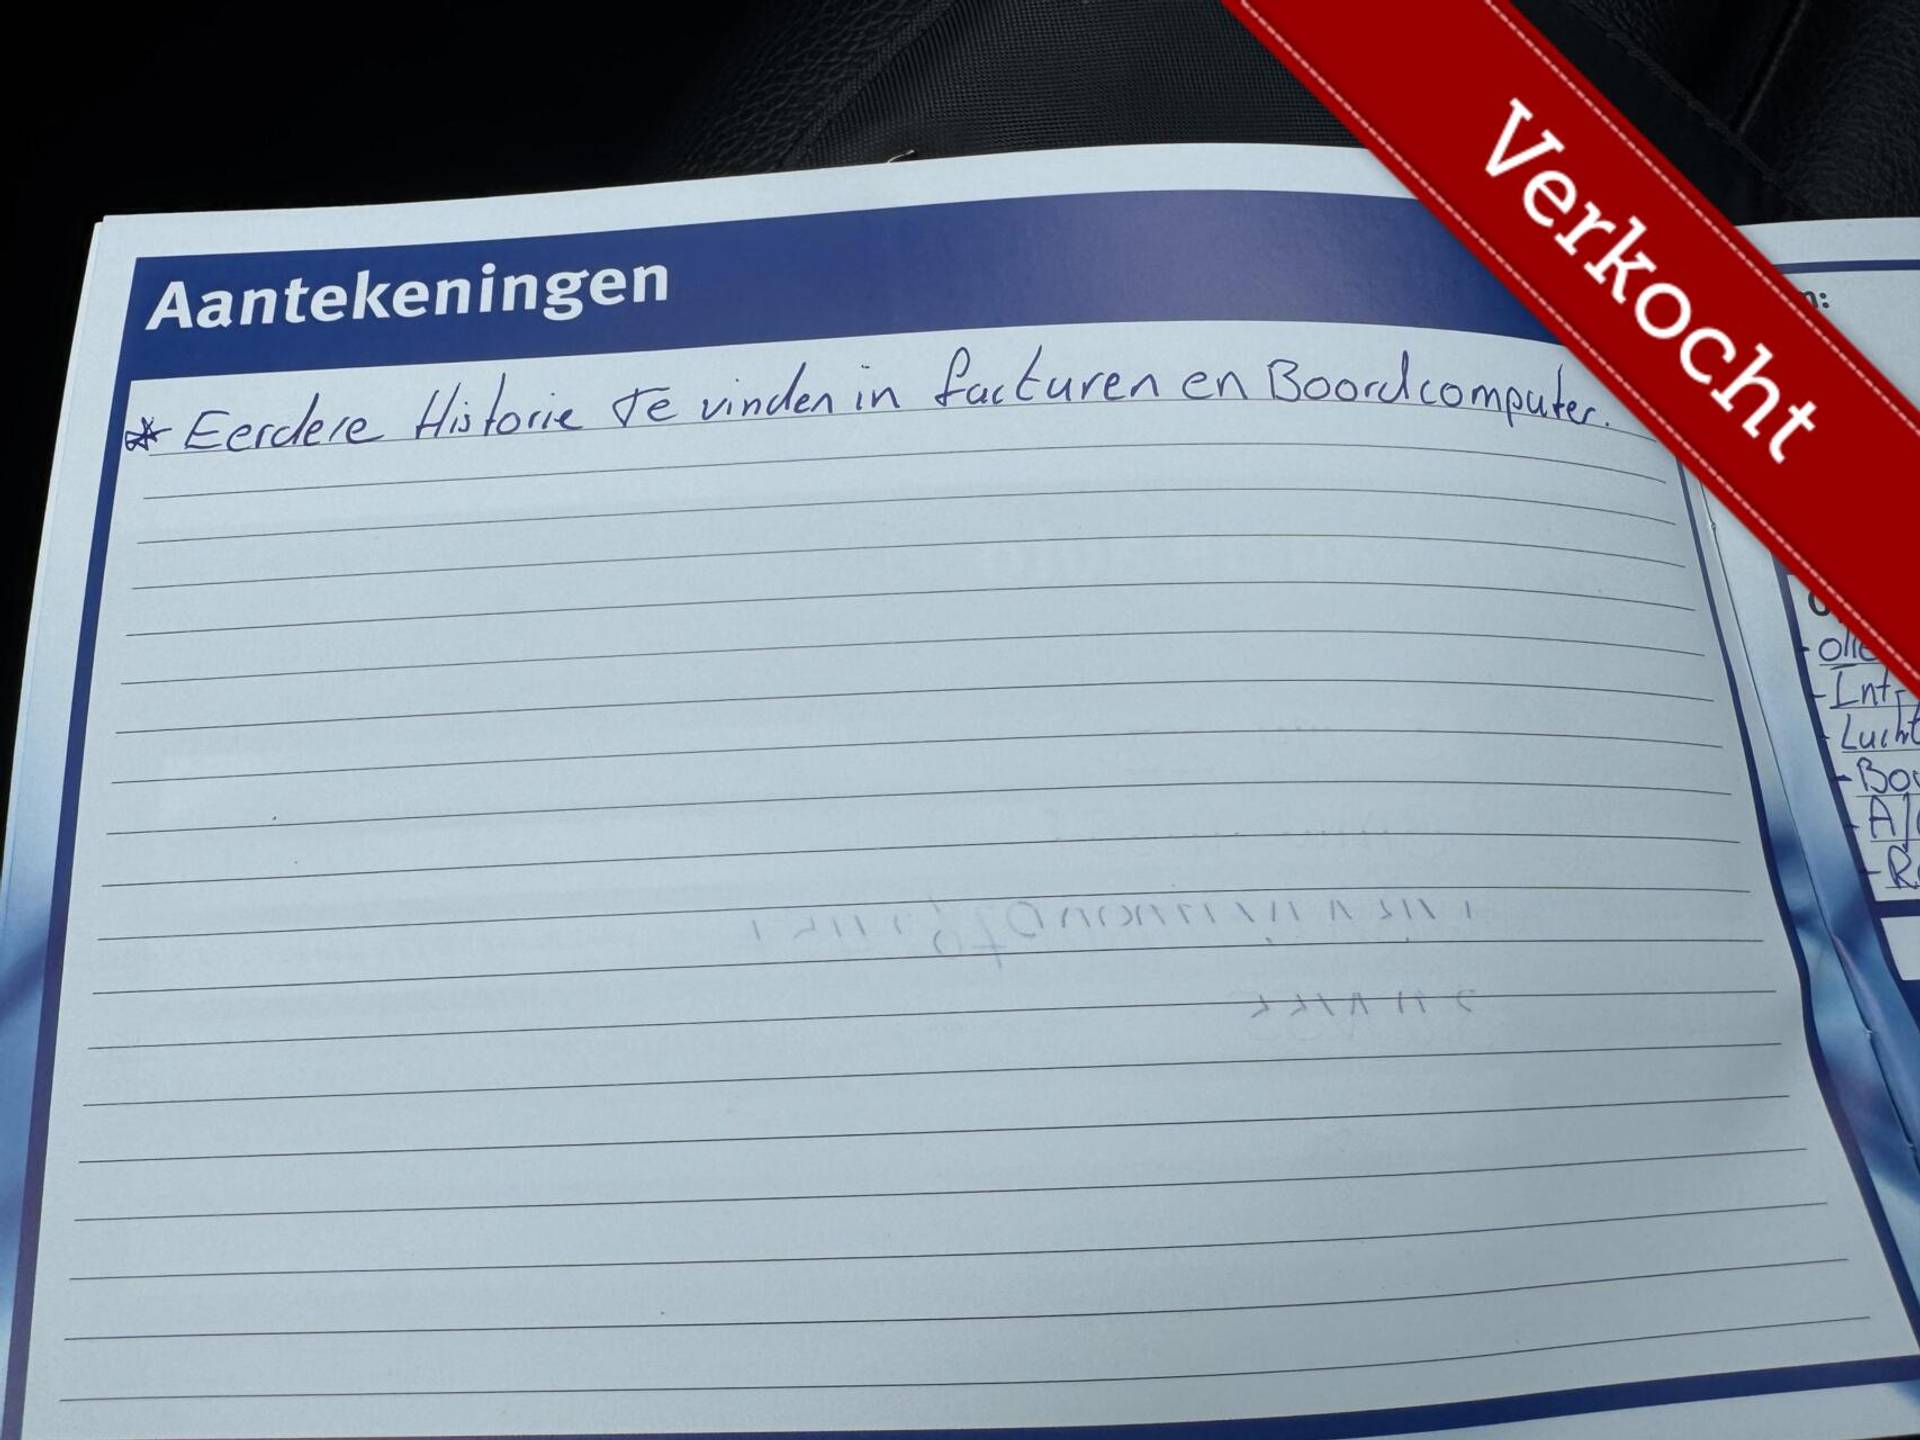 Verkocht
Aantekeningen
* Eerdere Historie Te vinden in facturen en Boordcomputer.
- olie
- Int
- Lucht